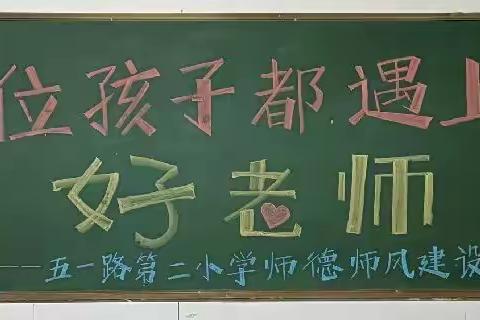 位孩子都遇上
好老师
——五一路第二小学师德师风建设